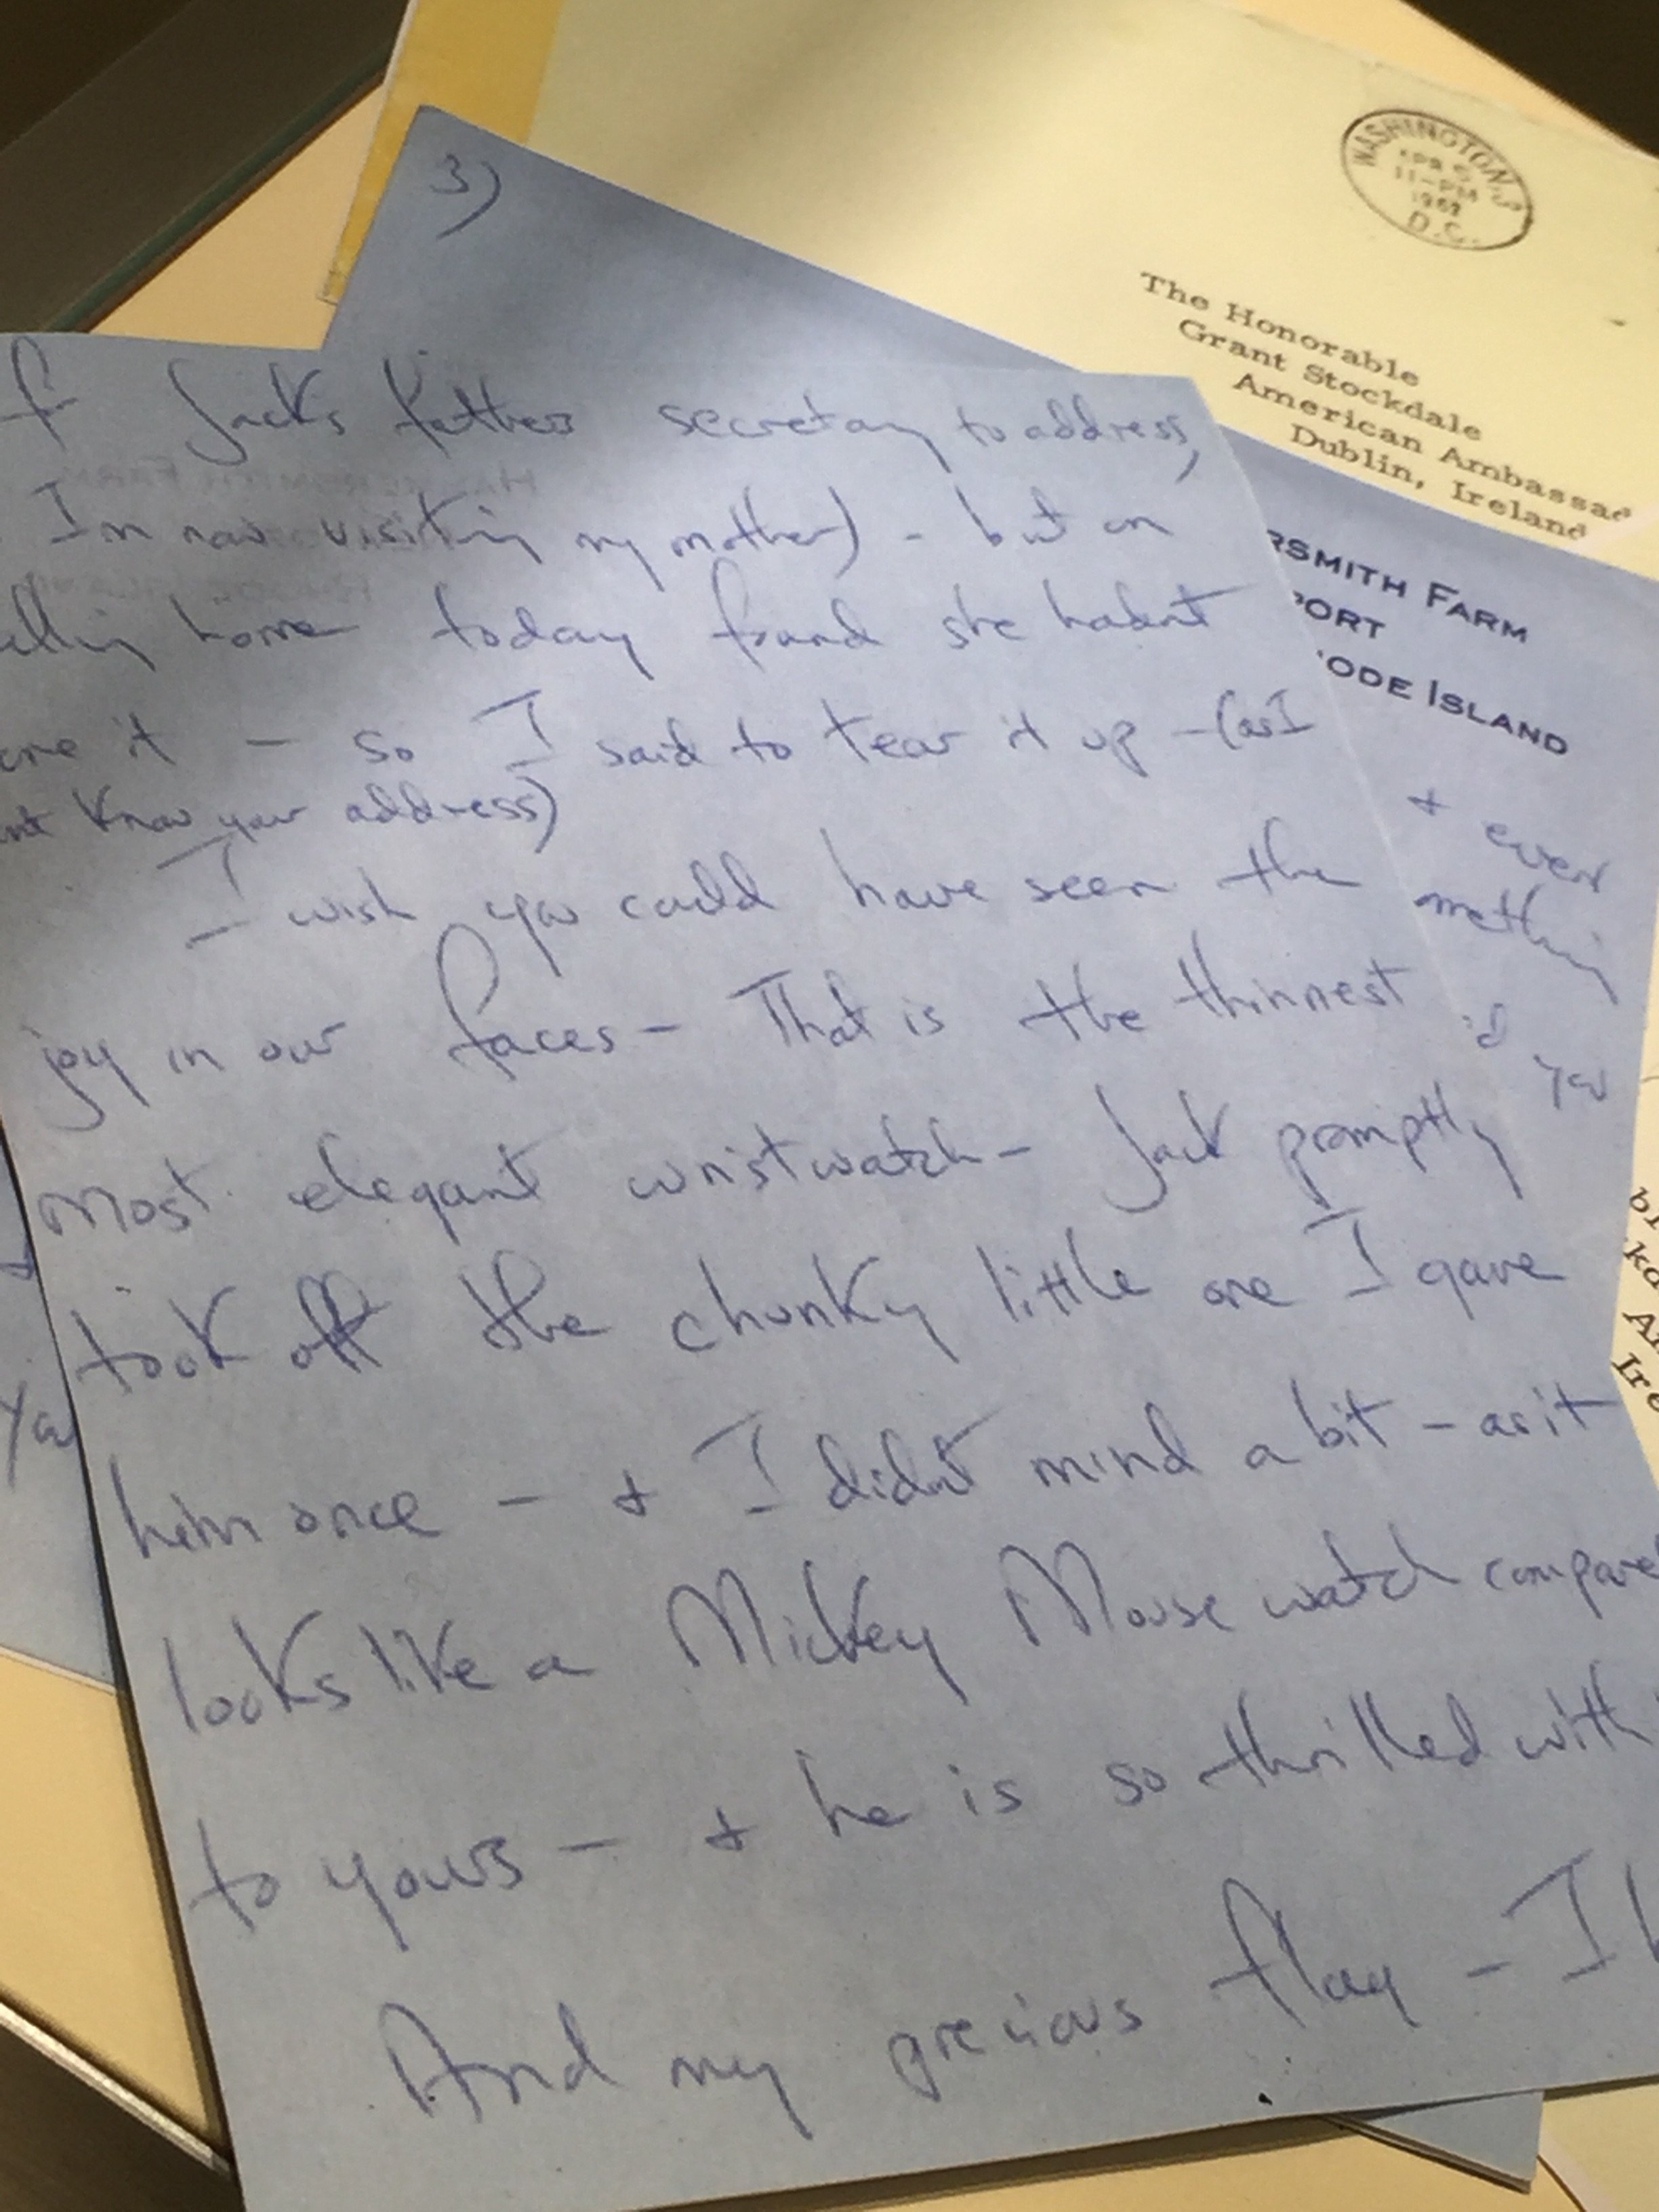 WASHINGTON,
11-PM
D.C.
The Honorable
Grant Stockdale
American Ambassad
Dublin, Ireland
3)
RSMITH FARM
PORT
ODE ISLAND
+ ever
omething
You
f Jack's father's secretary to address,
I'm now visiting my mother) - but on
alling home today found she hadnt
one it - so I said to tear it up - (as I
nt know your address)
I wish you could have seen the
joy in our faces - That is the thinnest
most elegant wristwatch - Jack promptly
took off the chunky little one I gave
him once - + I didn't mind a bit - as it
looks like a Mickey Mouse watch compared
to yours - + he is so thrilled with
And my precious flag - I
You
Ire